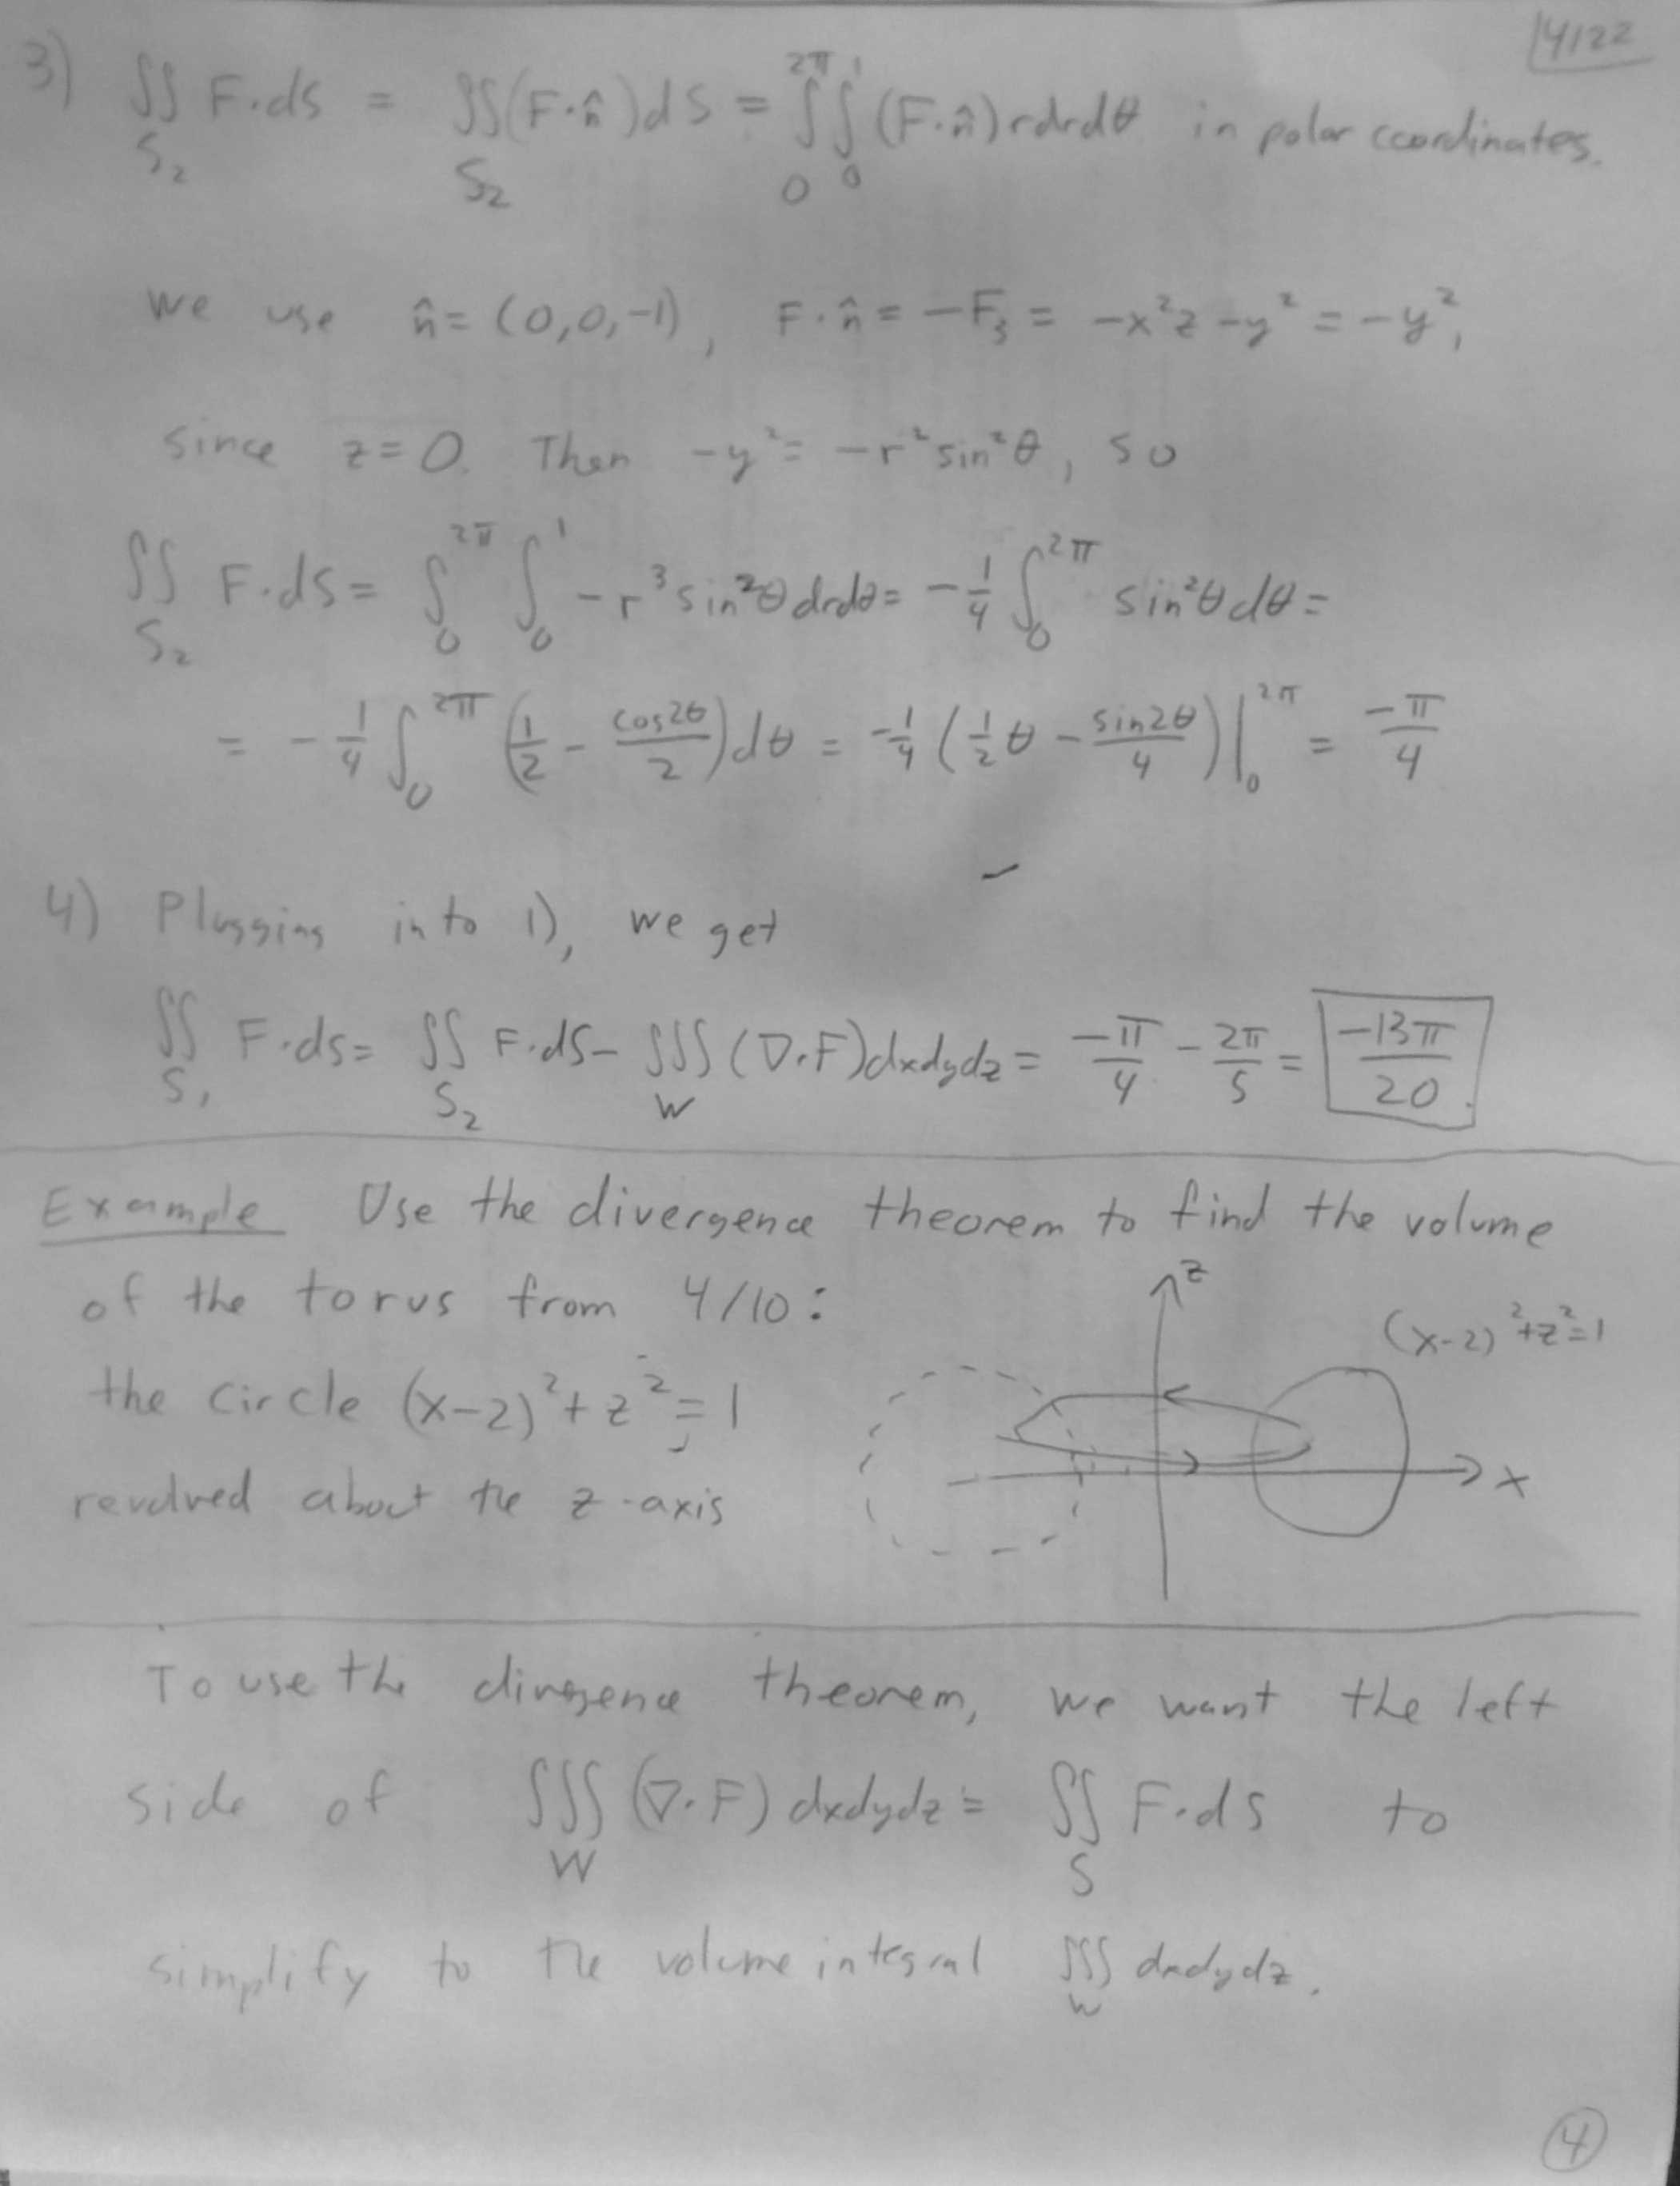 4/22
3) ∬_{S₂} F·dS = ∬_{S₂} (F·n̂)dS = ∫₀^{2π} ∫₀^1 (F·n̂) r dr dθ in polar coordinates.
We use n̂ = (0,0,-1), F·n̂ = -F₃ = -x²z - y² = -y²,
since z=0. Then -y² = -r² sin²θ, so
∬_{S₂} F·dS = ∫₀^{2π} ∫₀^1 -r³ sin²θ dr dθ = -1/4 ∫₀^{2π} sin²θ dθ =
= -1/4 ∫₀^{2π} (1/2 - cos2θ/2) dθ = -1/4 (1/2 θ - sin2θ/4)|₀^{2π} = -π/4
4) Plugging into 1), we get
∬_{S₁} F·dS = ∬_{S₂} F·dS - ∭_W (∇·F) dxdydz = -π/4 - 2π/5 = -13π/20.
Example Use the divergence theorem to find the volume
of the torus from 4/10:
z
(x-2)²+z²=1
the circle (x-2)²+z²=1,
x
revolved about the z-axis
To use the divergence theorem, we want the left
side of ∭_W (∇·F) dxdydz = ∬_S F·dS to
simplify to the volume integral ∭_W dxdydz.
4